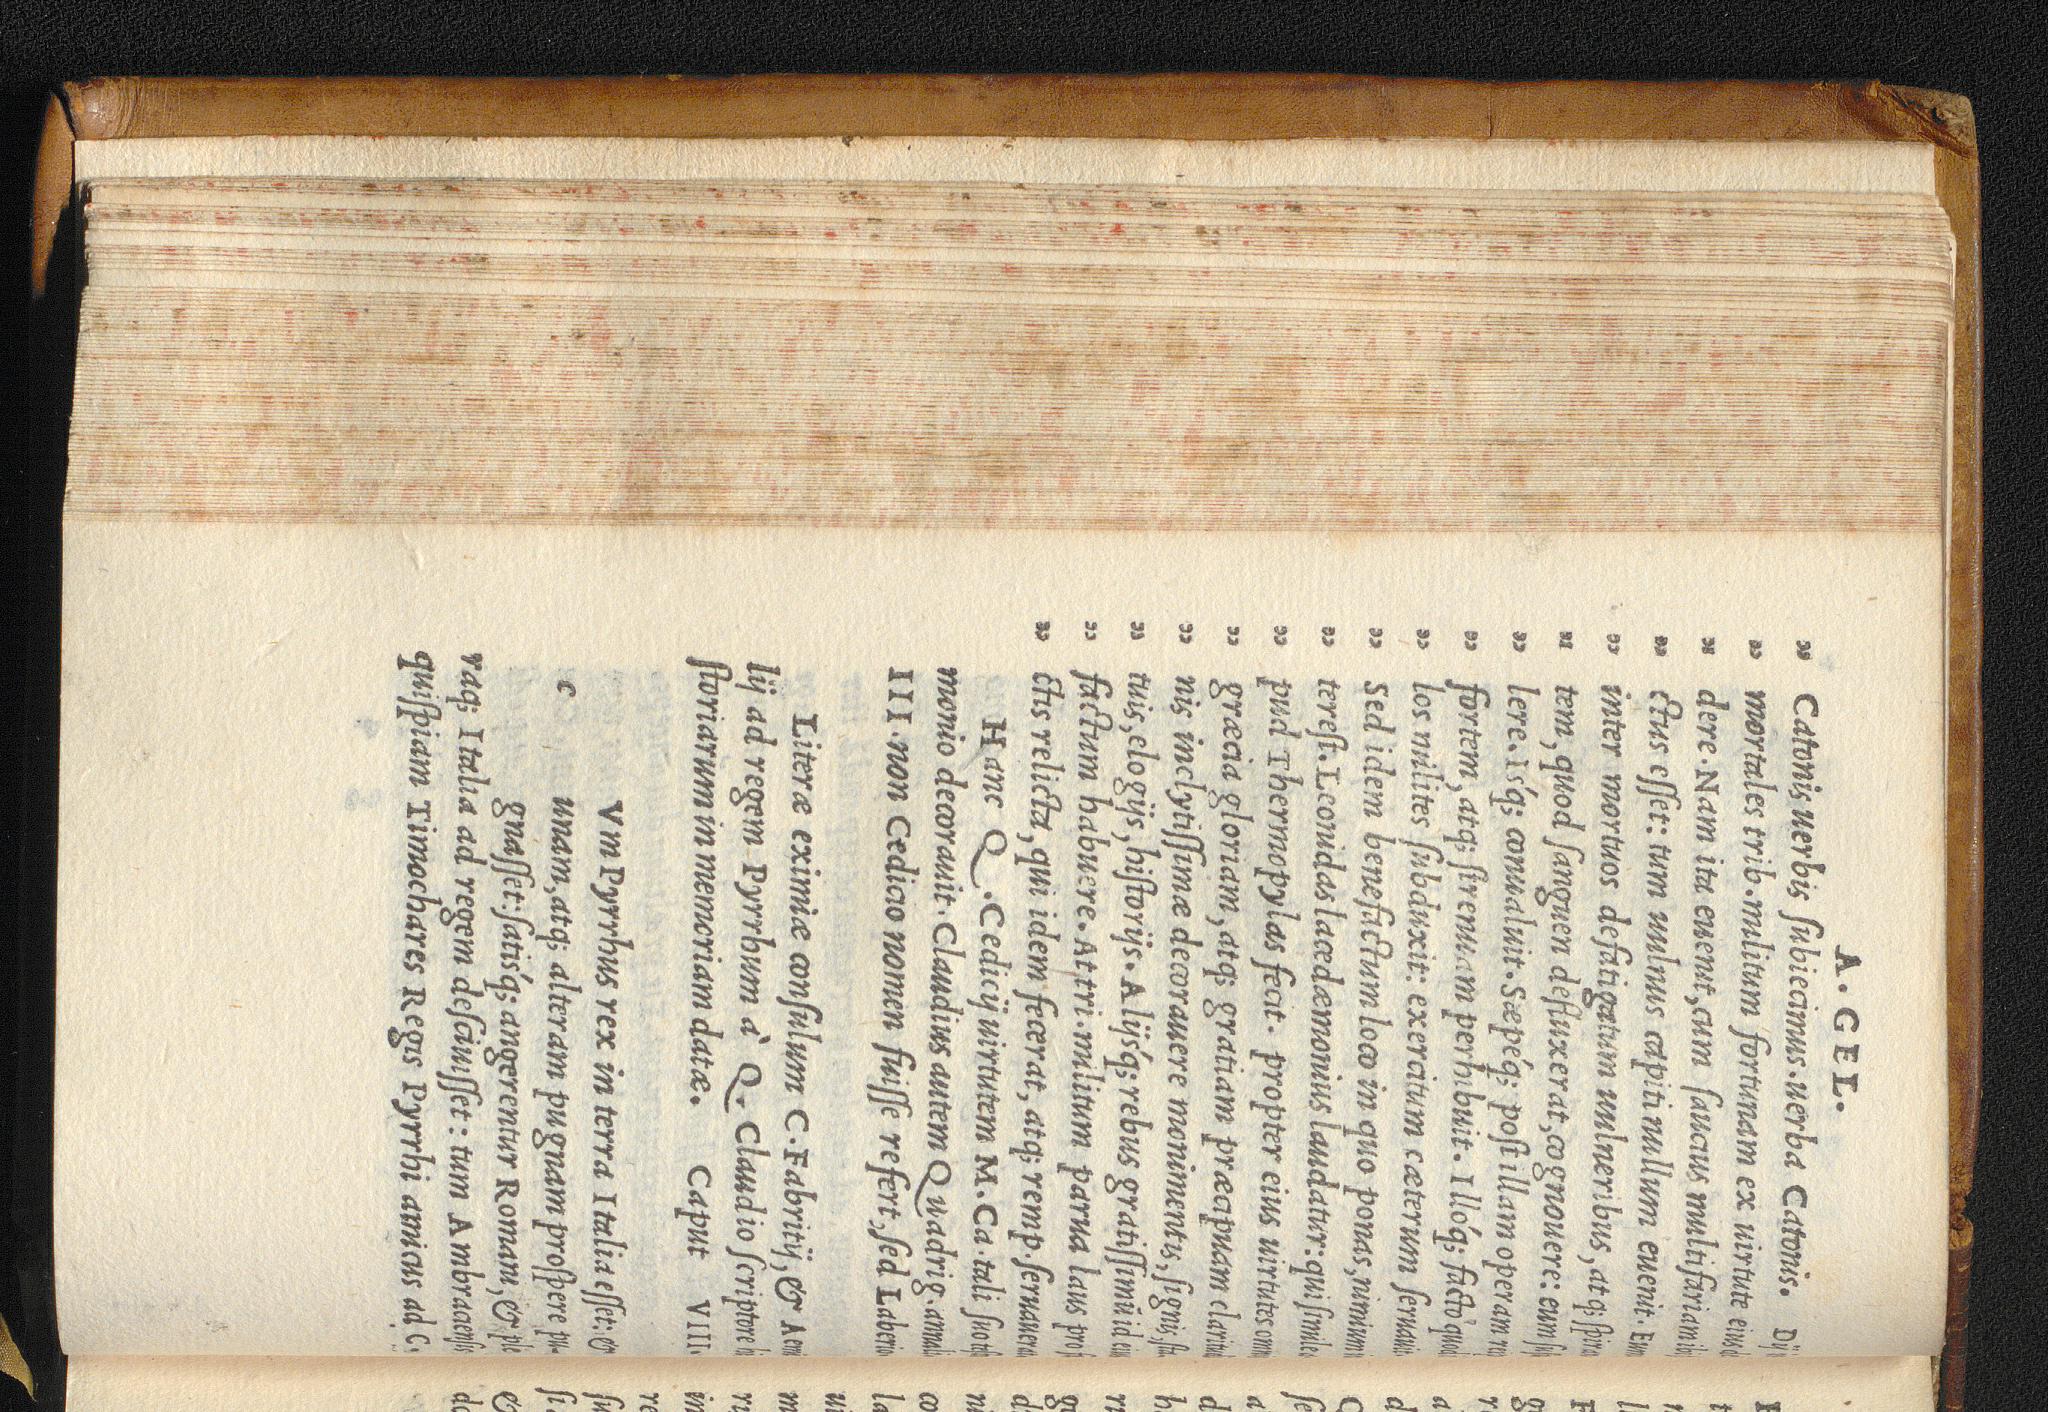 A. GEL.
„ Catonis uerbis ſubiecimus. uerba Catonis. Dij
„ mortales trib. militum fortunam ex uirtute eius
„ dere. Nam ita euenit, cum ſaucius multifariam ibi
„ ctus eſſet: tum uulnus capiti nullum euenit. Eum
„ inter mortuos defatigatum uulneribus, atq; ſpiri
„ tem, quod ſanguen defluxerat, cognouere: eum
„ lere. Isq́; conualuit. Sæpéq; poſt illam operam
„ fortem, atq; ſtrenuam perhibuit. Illóq; facto quod
„ los milites ſubduxit: exercitum cæterum ſeruauit
„ Sed idem benefictum loco in quo ponas, nimium
„ tereſt. Leonidas lacedæmonius laudatur: qui ſimile
„ pud Thermopylas fecit. propter eius uirtutes omn
„ græcia gloriam, atq; gratiam præcipuam clarit
„ nis inclytiſſimæ decorauere monimentis, ſignis, ſta
„ tuis, elogijs, hiſtorijs. Alijsq́; rebus gratiſſimū id
„ factum habuere. At tri. militum parua laus pro f
„ ctis relicta, qui idem fecerat, atq; remp. ſeruauera
Hanc Q. Cedicij uirtutem M. Ca. tali ſuo teſt
monio decorauit. Claudius autem Quadrig. annali
III. non Cedicio nomen fuiſſe refert, ſed Laberio
Literæ eximiæ conſulum C. Fabritij, & Aemi
lij ad regem Pyrrhum à Q. Claudio ſcriptore hi
ſtoriarum in memoriam datæ. Caput VIII.
c Vm Pyrrhus rex in terra Italia eſſet: &
unam, atq; alteram pugnam proſpere pu-
gnaſſet: ſatisq́; angerentur Romani, & ple
raq; Italia ad regem deſciuiſſet: tum Ambracienſis
quiſpiam Timochares Regis Pyrrhi amicus ad C.